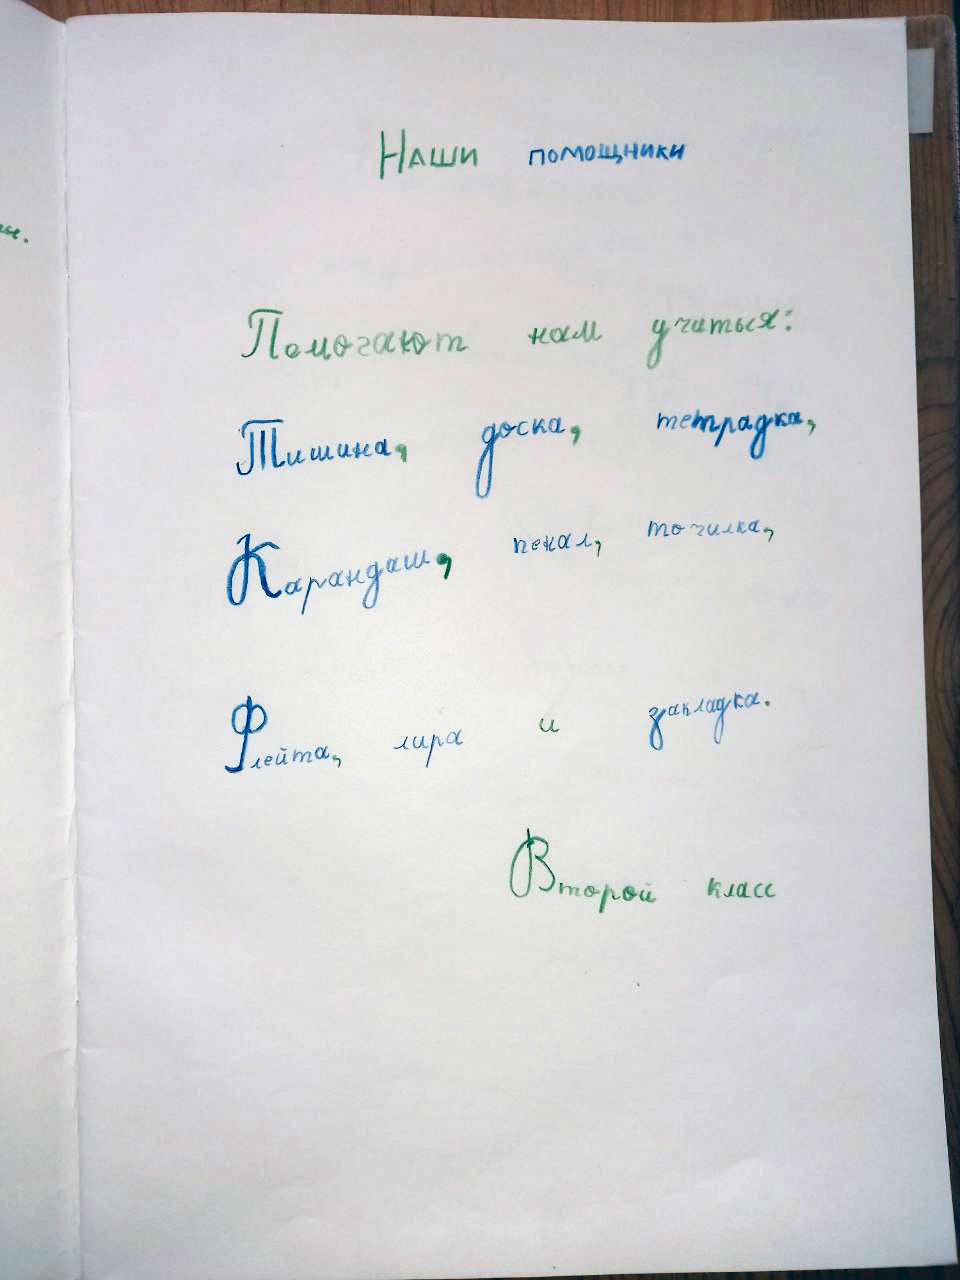 Наши помощники
Помогают нам учиться:
Тишина, доска, тетрадка,
Карандаш, пенал, точилка,
Флейта, лира и закладка.
Второй класс